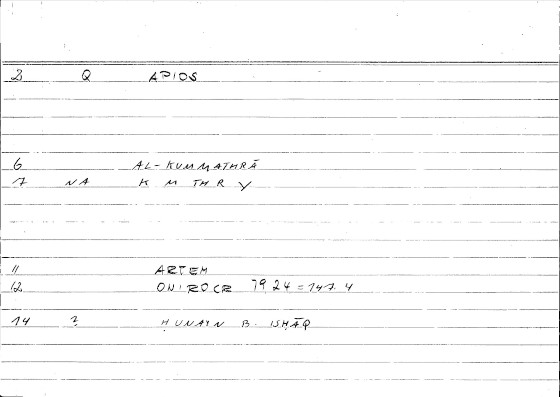 2 Q APIOS
6 AL-KUMMATHRĀ
7 NA K M THR Y
11 ARTEM
12 ONIROCR 79 24 = 147.4
14 2 ḤUNAYN B. ISḤĀQ